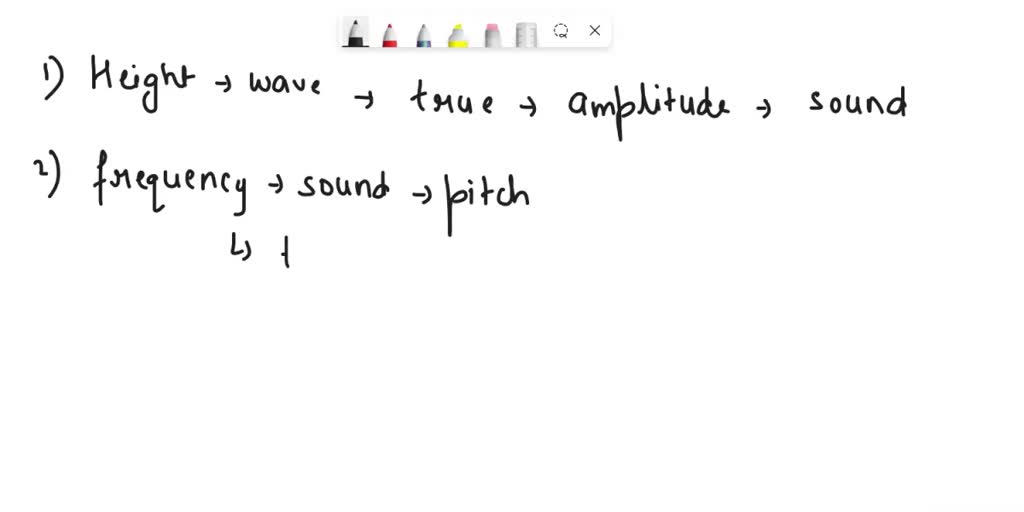 1) Height → wave → true → amplitude → sound
2) frequency → sound → pitch
↳ t